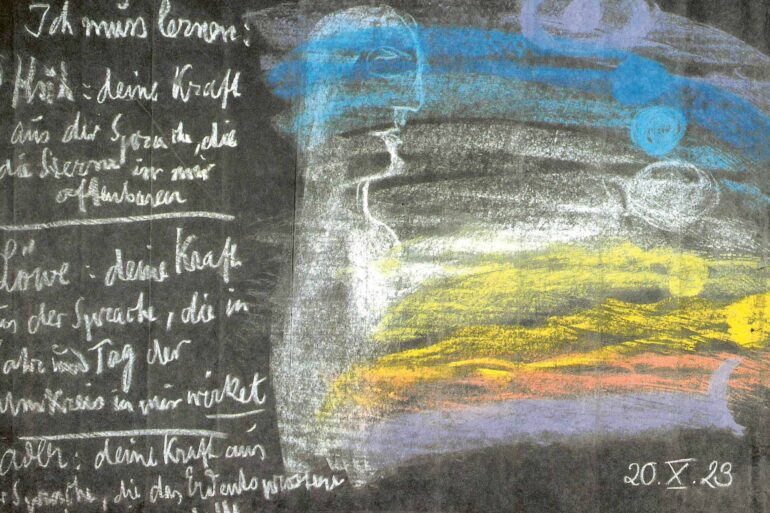 Ich muss lernen:
deine Kraft
aus der Sprache, die
die Sterne in mir
offenbaren
Löwe: deine Kraft
der Sprache, die in
und Tag der
umkreis in mir wirket
adler: deine Kraft aus
Sprache, die das
20.X.23